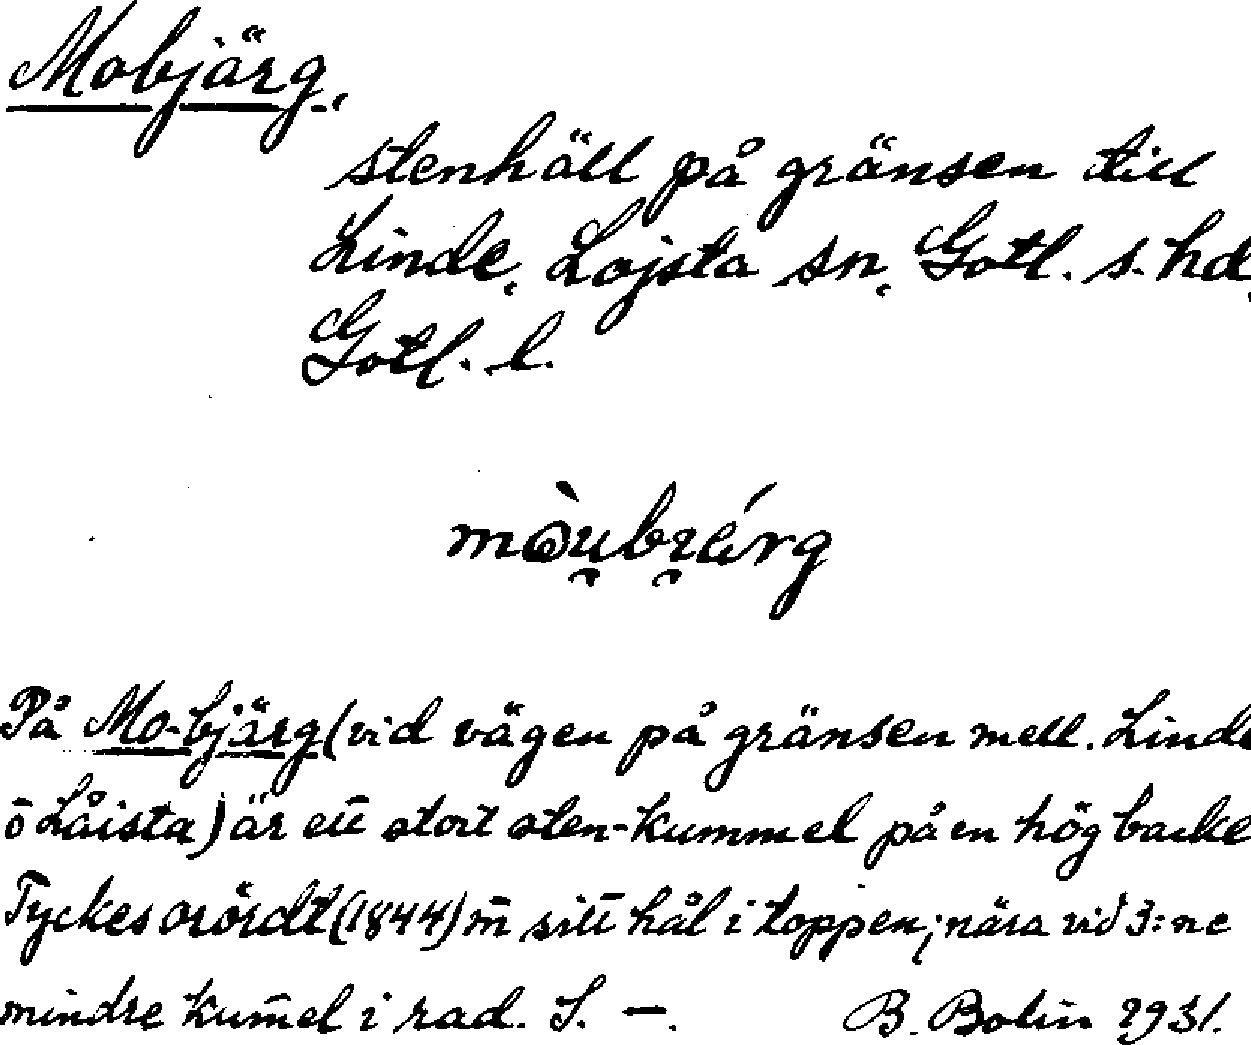 Mobjärg.
stenhäll på gränsen till
Linde, Lojsta sn, Gotl. s. hd,
Gotl. l.
På Mo-bjärg (vid vägen på gränsen mell. Linde
ō Låista) är ett stort sten-kummel på en hög backe
Tyckes orördt (1844) m̄ sitt hål i toppen; nära vid 3:ne
mindre kum̄el i rad. S. —.
B. Bolin 1931.